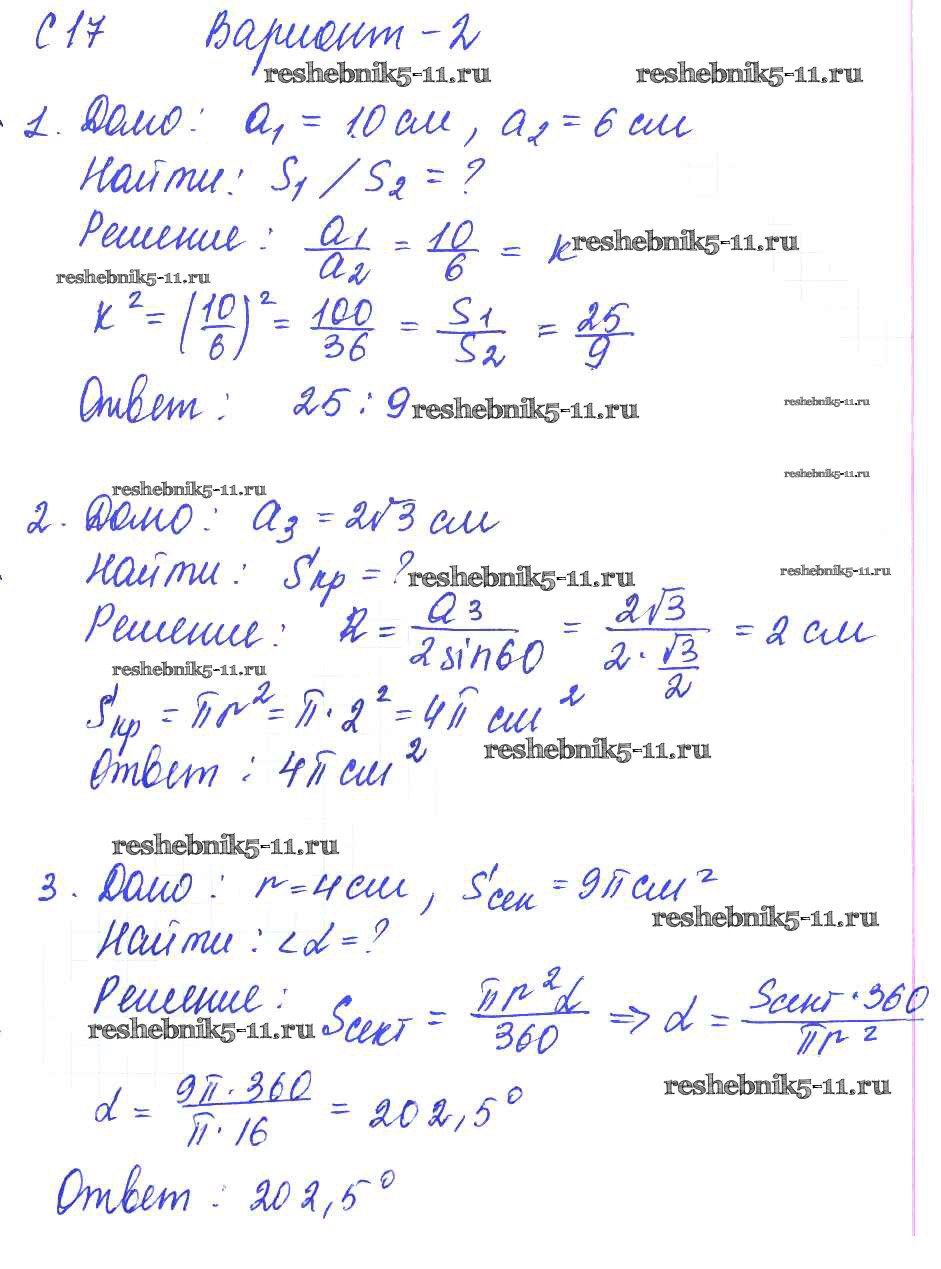 С 17 Вариант - 2
reshebnik5-11.ru reshebnik5-11.ru
1. Дано: a₁ = 10 см, a₂ = 6 см
Найти: S₁ / S₂ = ?
Решение: a₁/a₂ = 10/6 = k reshebnik5-11.ru
reshebnik5-11.ru
k² = (10/6)² = 100/36 = S₁/S₂ = 25/9
Ответ: 25 : 9 reshebnik5-11.ru reshebnik5-11.ru
reshebnik5-11.ru
reshebnik5-11.ru
2. Дано: a₃ = 2√3 см
Найти: Sкр = ? reshebnik5-11.ru reshebnik5-11.ru
Решение: R = a₃/2sin60 = 2√3/2·√3/2 = 2 см
reshebnik5-11.ru
Sкр = πr² = π·2² = 4π см²
reshebnik5-11.ru
Ответ: 4π см²
reshebnik5-11.ru
3. Дано: r = 4 см, Sсек = 9π см²
reshebnik5-11.ru
Найти: <α = ?
Решение: Sсект = πr²α/360 => α = Sсект·360/πr²
reshebnik5-11.ru
reshebnik5-11.ru
α = 9π·360/π·16 = 202,5°
Ответ: 202,5°